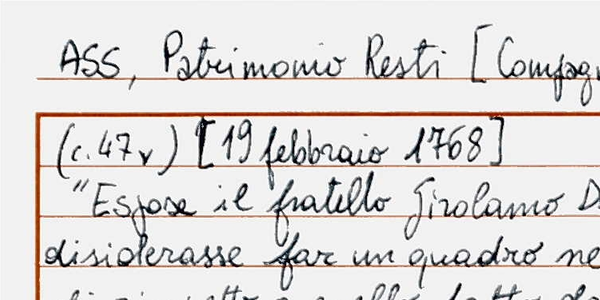 ASS, Patrimonio Resti [Compag
(c. 47v) [19 febbraio 1768]
"Espose il fratello Girolamo D
disiderasse far un quadro ne